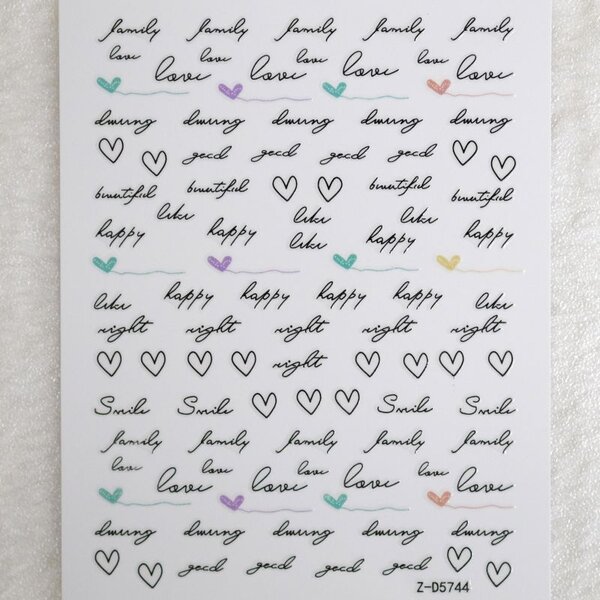 family family family family family
love love love
love love love love
good good good good
beautiful beautiful beautiful beautiful
like like like
happy happy like happy happy
like happy happy happy happy like
right right right right right
right
Smile Smile Smile Smile
family family family family family
love love love love
love love love love
good good good good
Z-D5744